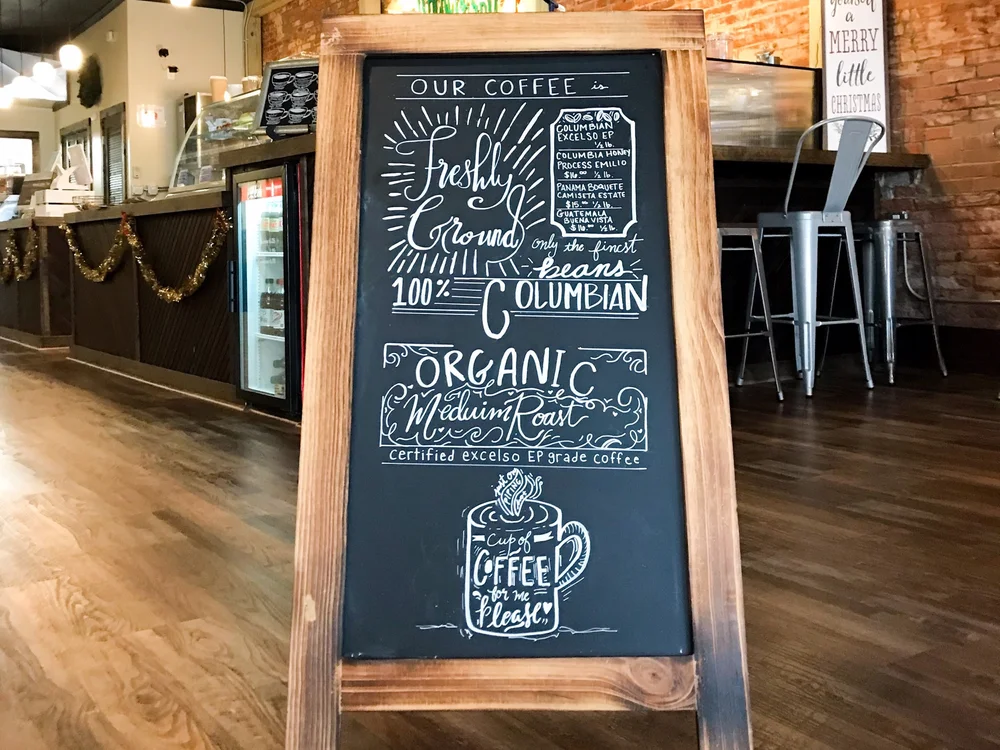 OUR COFFEE is
Freshly
Ground
COLUMBIAN
EXCELSO EP
½ lb.
COLUMBIA HONEY
PROCESS EMILIO
$16.00 ½ lb.
PANAMA BOQUETE
CAMISETA ESTATE
$15.00 ½ lb.
GUATEMALA
BUENA VISTA
$16.00 ½ lb.
only the finest
beans
100% COLUMBIAN
ORGANIC
Meduim Roast
certified excelso EP grade coffee
PIPING
Cup of
COFFEE
for me
Please
yourself
a
MERRY
little
CHRISTMAS